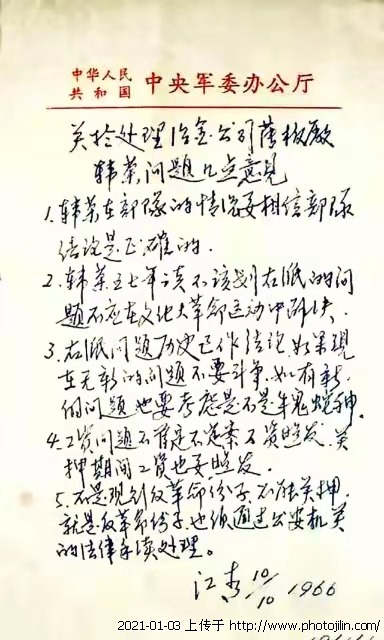 中华人民
共和国 中央军委办公厅
关於处理冶金公司薄板厰
韩荣问题几点意見
1.韩荣在部隊的情况要相信部隊
结论是正確的.
2.韩荣五七年该不该划右派的问
题不应在文化大革命运动中解决.
3.右派问题历史已作结论.如果現
在无新的问题不要斗争.如有新
的问题也要考虑是不是牛鬼蛇神.
4.工资问题不管定不定案工资照发.关
押期间工资也要照发.
5.不是現行反革命份子.不能关押.
就是反革命份子也须通过公安机关
的法律手续处理。
江青 10/10 1966
2021-01-03 上传于 http://www.photojilin.com/